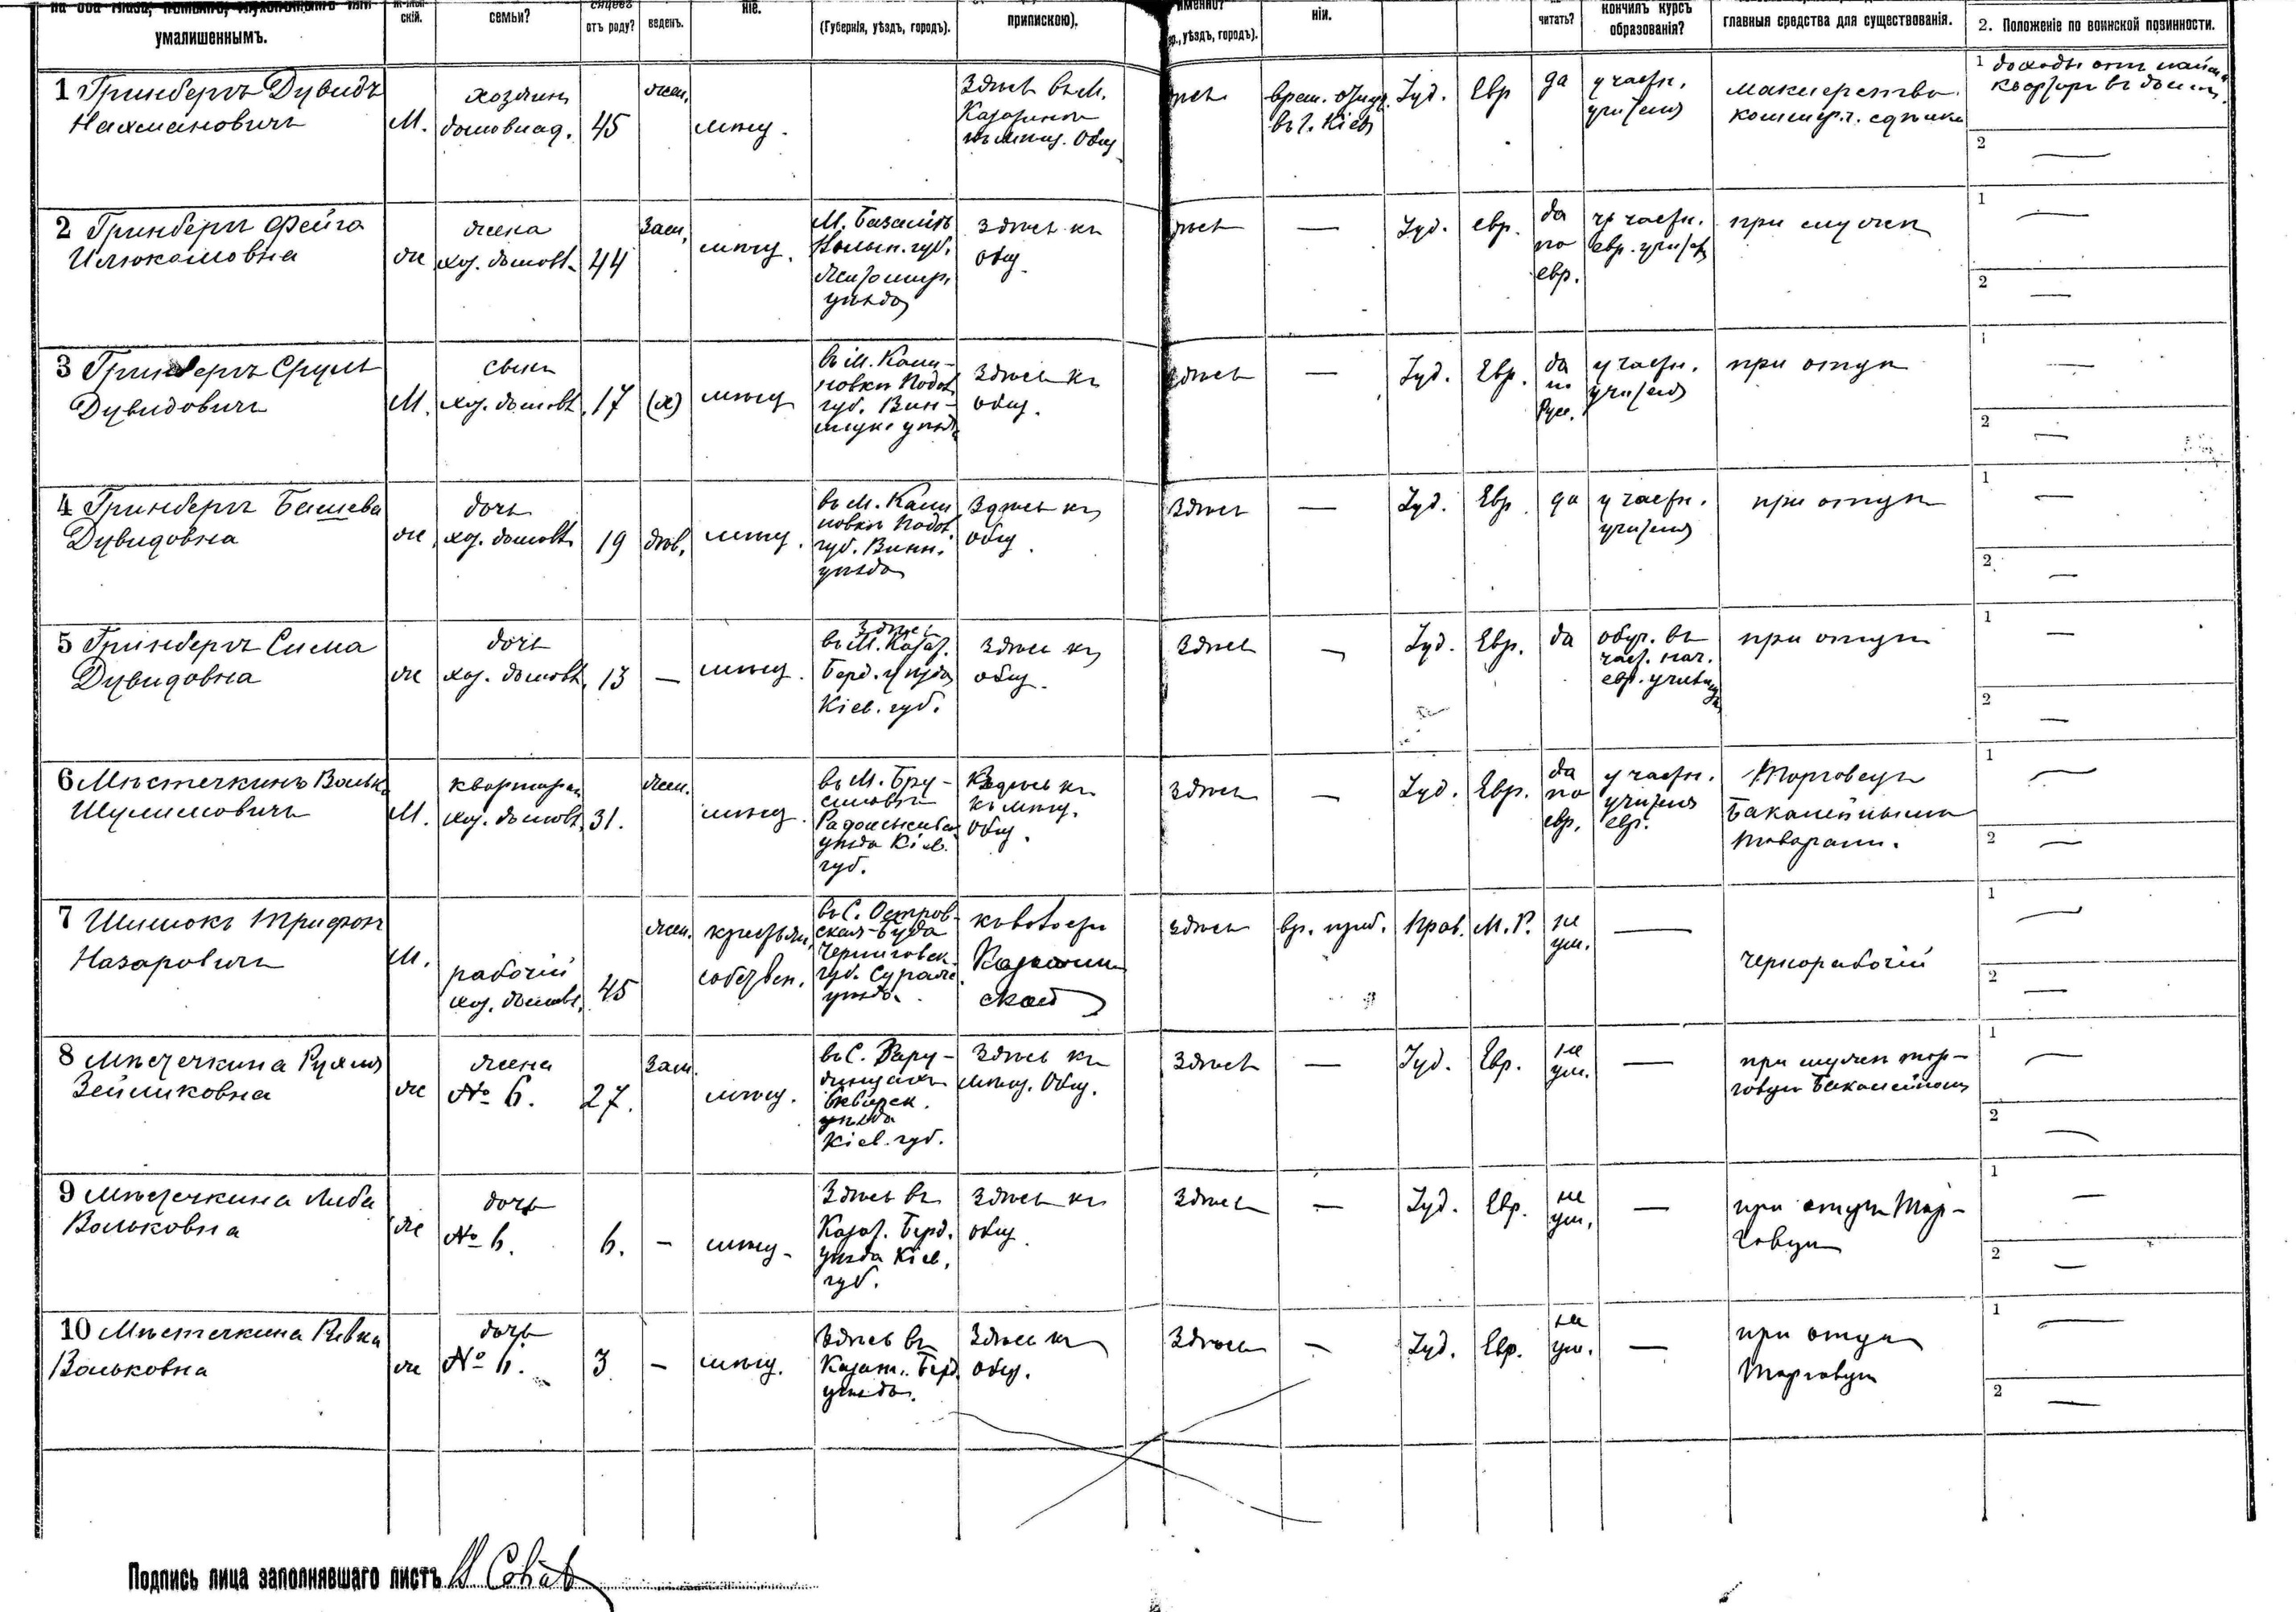 умалишеннымъ.
скій.
семьи?
отъ роду?
веденъ.
ніе.
(Губернія, уѣздъ, городъ).
припискою).
уѣздъ, городъ).
ніи.
читать?
кончилъ курсъ
образованія?
главныя средства для существованія.
2. Положеніе по воинской повинности.
1 Гринбергъ Дувидъ
Нахмановичъ
М.
хозяинъ
домовлад.
45
жен.
мѣщ.
Здѣсь въ м.
Казатинѣ
къ мѣщ. Общ.
врем. отлуч.
въ г. Кіев
Іуд.
Евр
да
у частн.
учителя
маклерство
1 доходы отъ найма
квартиръ въ домѣ
2 —
2 Гринбергъ Фейга
же
жена
хоз. домовл.
44
Зам.
мѣщ.
М.
Волын. губ.
Житомир.
уѣзда
Здѣсь къ
общ.
—
Іуд.
евр.
да
по
евр.
у частн.
евр. учит.
при мужѣ
1 —
2 —
3 Гринбергъ Сруль
Дувидовичъ
М.
сынъ
хоз. домовл.
17
(х)
мѣщ
въ м. Кали-
новкѣ Подол.
губ. Вин-
уѣзд.
Здѣсь къ
общ.
здѣсь
—
Іуд.
Евр.
да
по
Рус.
у частн.
учителя
при отцѣ
1 —
2 —
4 Гринбергъ Башева
Дувидовна
же
дочь
хоз. домовл.
19
дѣв.
мѣщ.
въ м. Кали
новкѣ Подол.
губ. Винн.
уѣзда
Здѣсь къ
общ.
Здѣсь
—
Іуд.
Евр
да
у частн.
учителя
при отцѣ
1 —
2. —
5 Гринбергъ Сима
Дувидовна
же
дочь
хоз. домовл.
13
—
мѣщ.
Здѣсь
въ М. Казат.
Берд. уѣзда
Кіев. губ.
Здѣсь къ
общ.
Здѣсь
—
Іуд.
Евр.
да
обуч. въ
част. нач.
евр. училищѣ
при отцѣ
1 —
2 —
6 Мѣстечкинъ Волько
Шулимовичъ
М.
квартиран
хоз. домовл.
31.
жен.
мѣщ.
въ М. Бру-
силовѣ
Радомысльск
уѣзда Кіев.
губ.
Здѣсь къ
къ мѣщ.
общ.
здѣсь
—
Іуд.
Евр.
да
по
евр.
у частн.
учителя
евр.
Торговецъ
бакалейнымъ
товарами.
1 —
2 —
7 Шишокъ Трифонъ
Назаровичъ
М.
рабочій
хоз. домовл.
45
жен.
крестьян.
собствен.
въ С. Остров-
ская-Буда
Черниговск.
губ. Сураж.
уѣзда.
къ волости
Казатин
ской
здѣсь
вр. преб.
Прав.
М. Р.
не
ум.
—
чернорабочій
1 —
2 —
8 Мѣстечкина Рухля
Зейликовна
же
жена
№ 6.
27.
Зам.
мѣщ.
въ С.
Сквирск.
уѣзда
Кіев. губ.
Здѣсь къ
мѣщ. Общ.
Здѣсь
—
Іуд.
Евр.
не
ум.
—
при мужѣ тор-
говцѣ бакалейномъ
1 —
2 —
9 Мѣстечкина Либа
Вольковна
же
дочь
№ 6.
6.
—
мѣщ.
Здѣсь въ
Казат. Берд.
уѣзда Кіев.
губ.
Здѣсь къ
общ.
Здѣсь
—
Іуд.
Евр.
не
ум.
—
при отцѣ Тор-
говцѣ
1 —
2 —
10 Мѣстечкина Ривка
Вольковна
же
дочь
№ 6.
3
—
мѣщ.
Здѣсь въ
Казат. Берд.
уѣзда.
Здѣсь къ
общ.
Здѣсь
—
Іуд.
Евр.
не
ум.
—
при отцѣ
Торговцѣ
1 —
2 —
Подпись лица заполнявшаго листъ